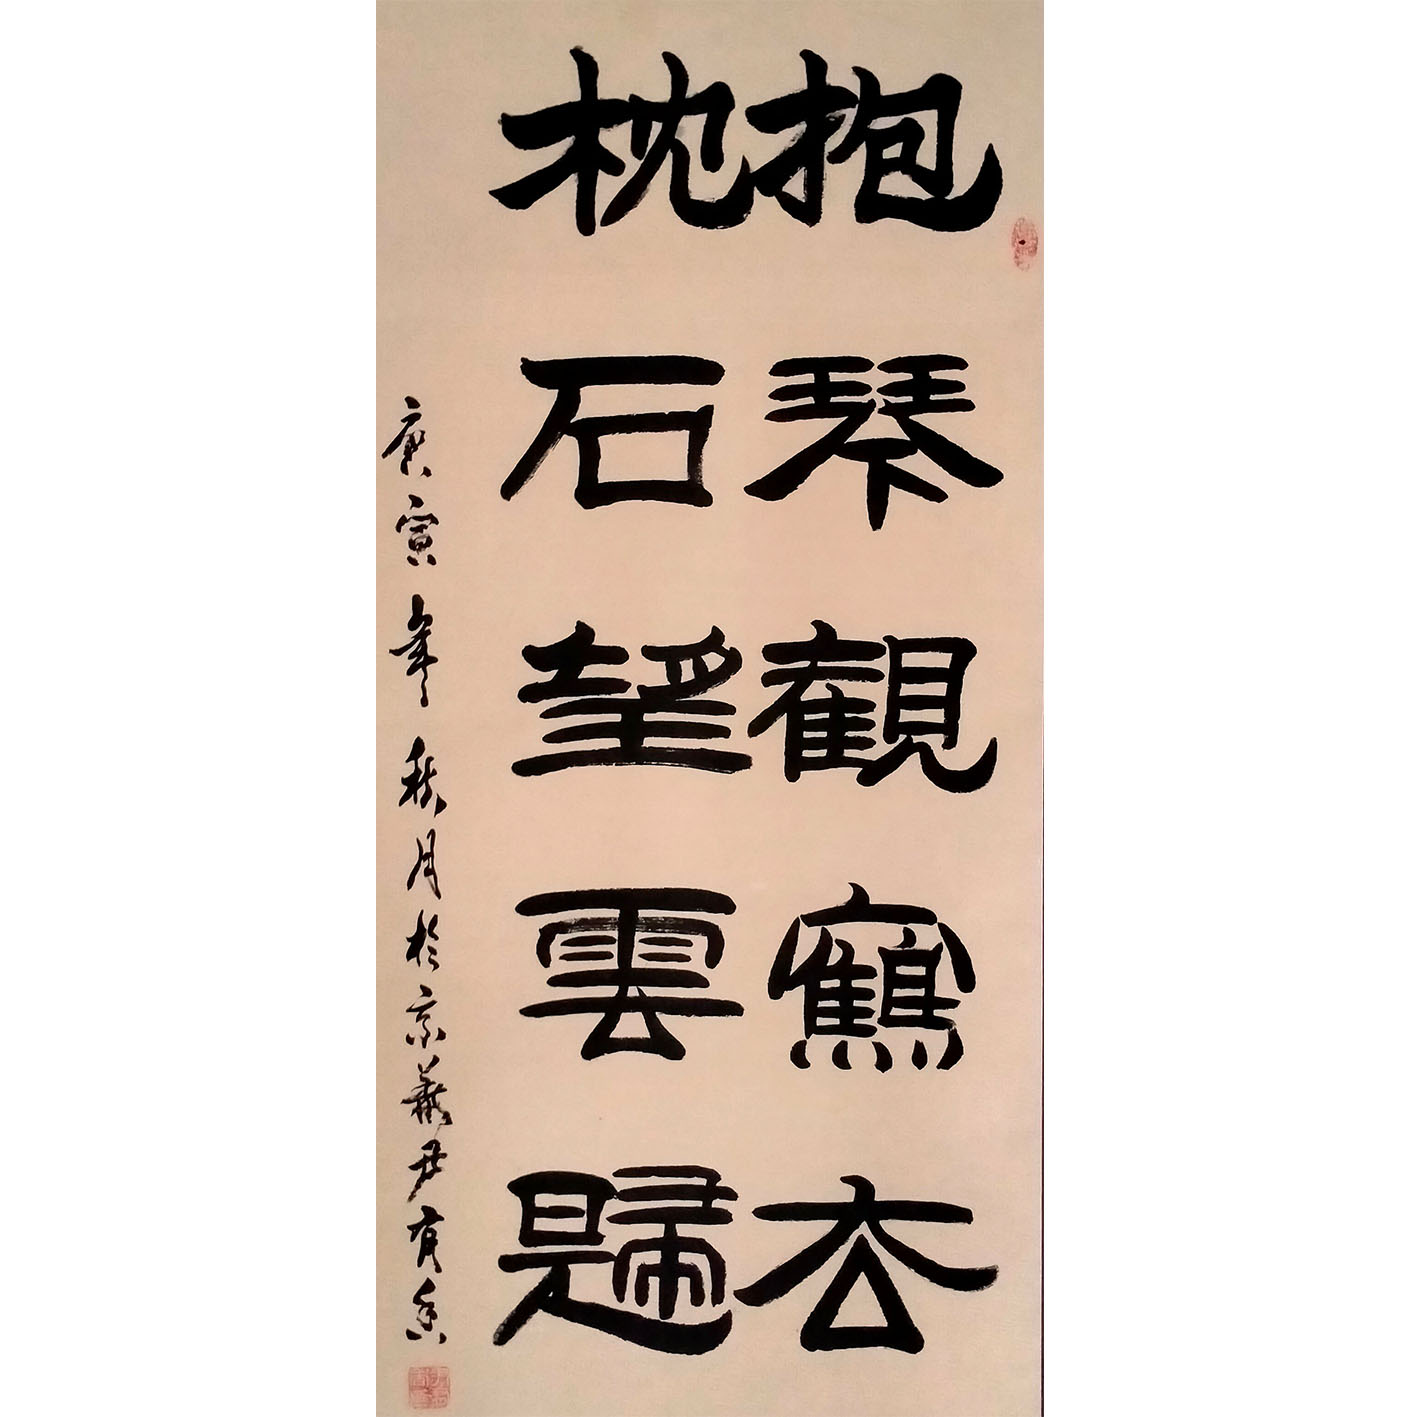 抱琴觀鶴去
枕石望雲歸
庚寅年秋月於京華尹有余